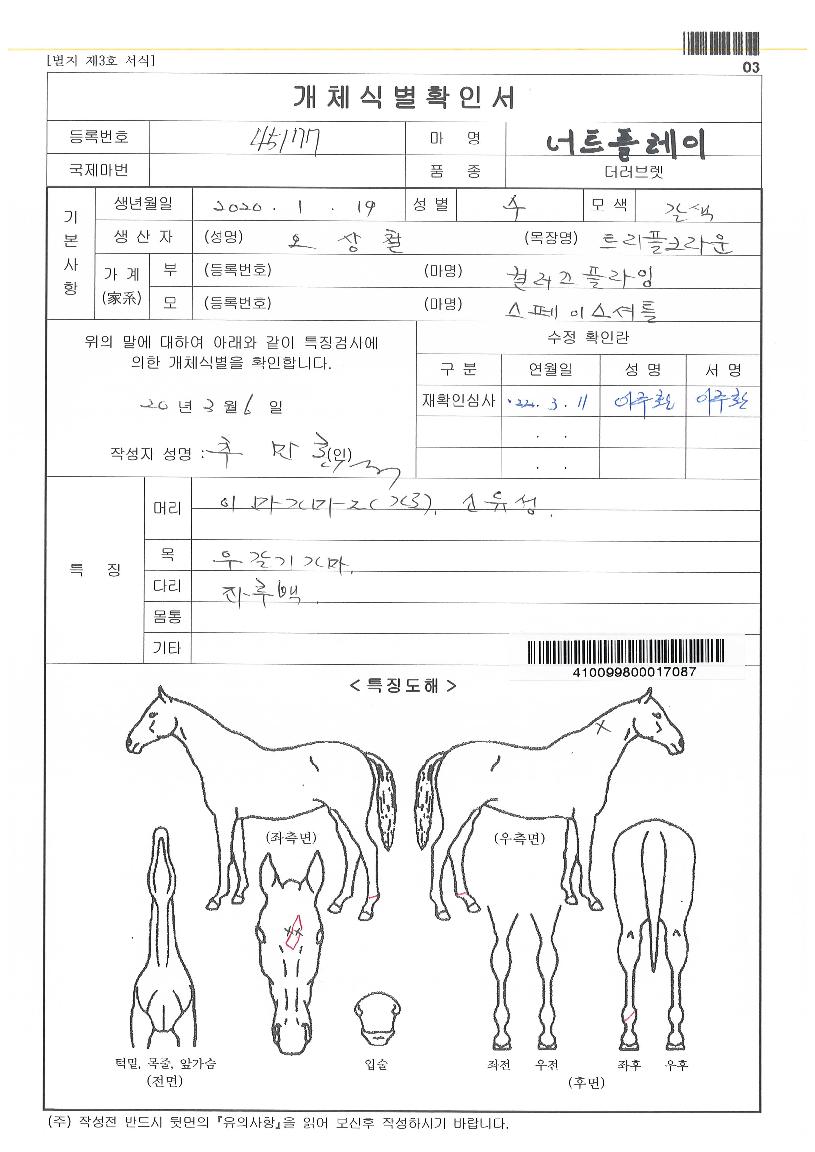 [별지 제3호 서식]
03
개체식별확인서
등록번호 45177 마 명 너트플레이
국제마번 품 종 더러브렛
기본사항
생년월일 2020 . 1 . 19 성별 수 모색 갈색
생산자 (성명) 오상훈 (목장명) 트리플크라운
가계 (家系) 부 (등록번호) (마명) 컬러즈플라잉
모 (등록번호) (마명) 스페이스셔틀
위의 말에 대하여 아래와 같이 특징검시에
의한 개체식별을 확인합니다.
20 년 3 월 6 일
작성지 성명 : 추 만 (인)
수정 확인란
구분 연월일 성명 서명
재확인심사 '22. 3. 11 이주환 이주환
. .
. .
특 징
머리 이마가마2(가로). 소유성.
목 우갈기가마.
다리 좌후백.
몸통
기타
410099800017087
<특징도해>
(좌측면) (우측면)
턱밑, 목줄, 앞가슴 입술 좌전 우전 좌후 우후
(전면) (후면)
(주) 작성전 반드시 뒷면의 『유의사항』을 읽어 보신후 작성하시기 바랍니다.